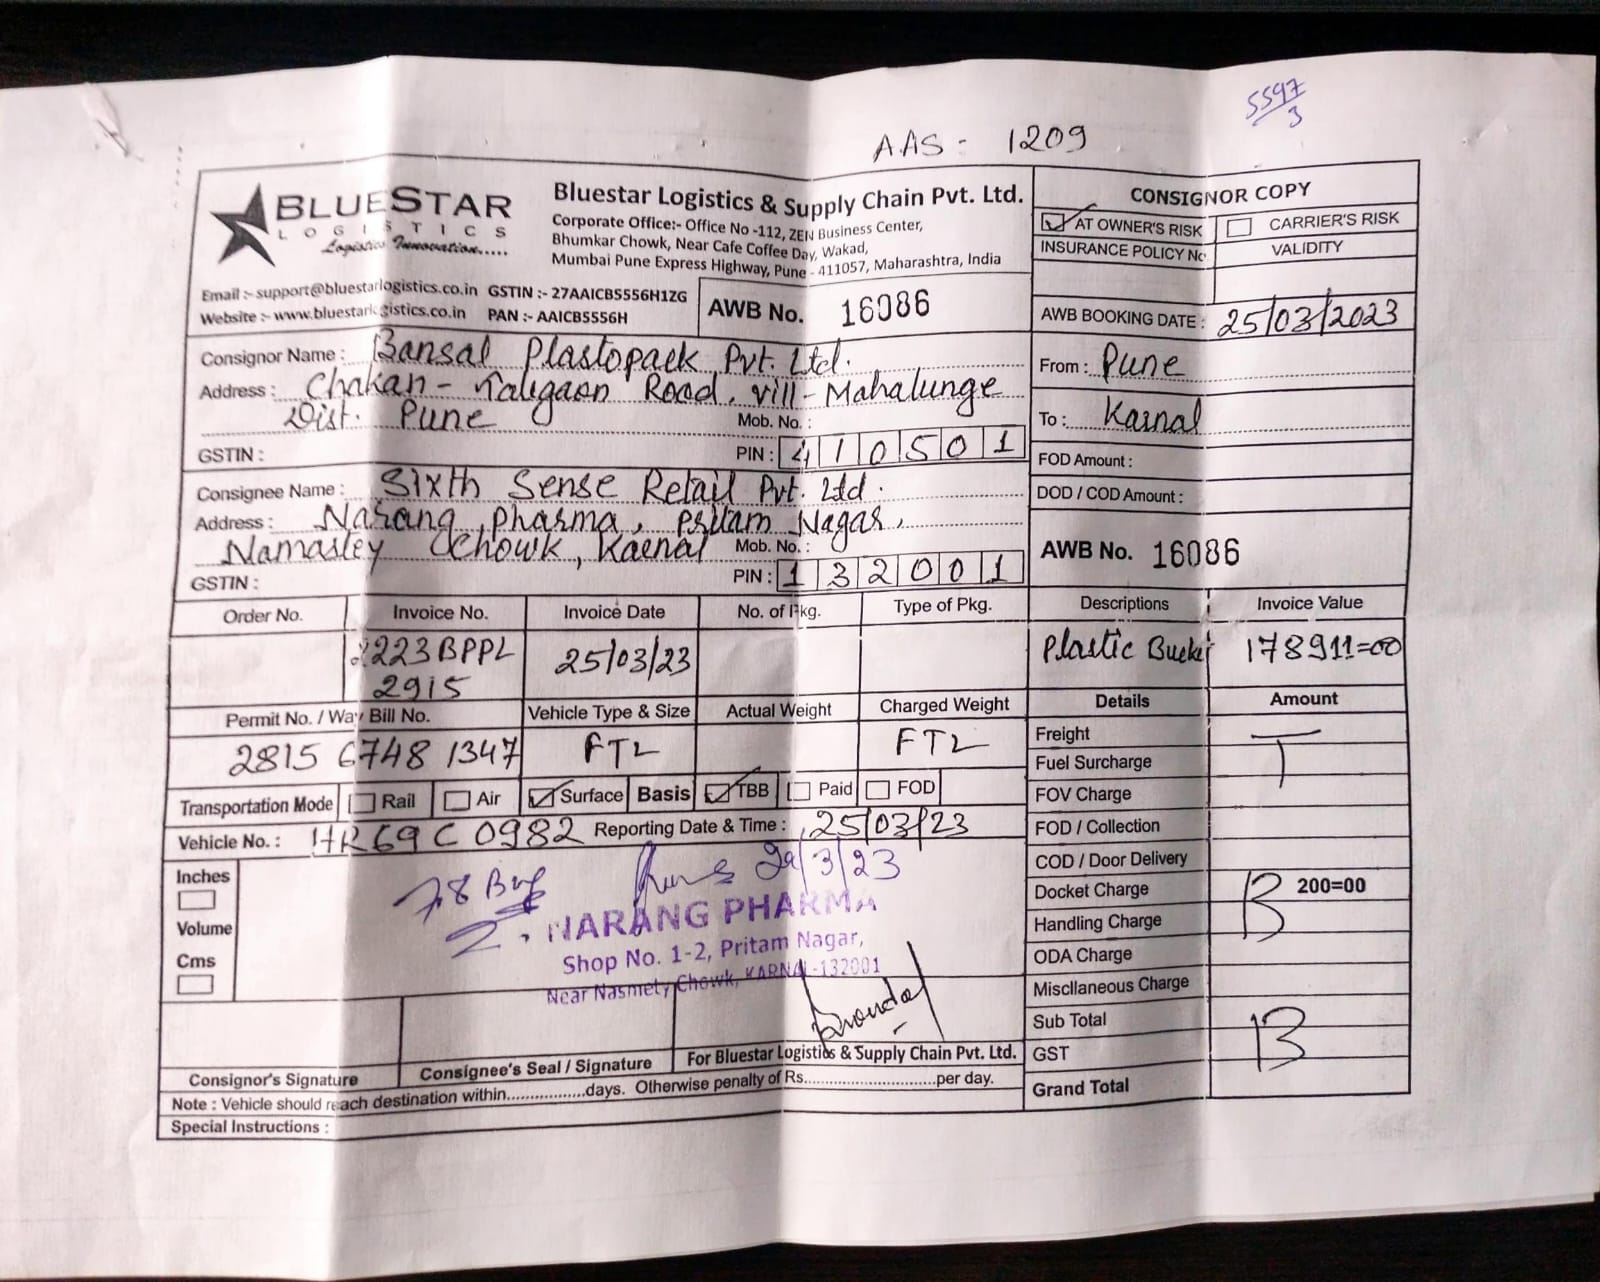 5597
3
AAS - 1209
BLUESTAR
LOGISTICS
Logistics Innovation.....
Bluestar Logistics & Supply Chain Pvt. Ltd.
Corporate Office:- Office No -112, ZEN Business Center,
Bhumkar Chowk, Near Cafe Coffee Day, Wakad,
Mumbai Pune Express Highway, Pune - 411057, Maharashtra, India
CONSIGNOR COPY
AT OWNER'S RISK CARRIER'S RISK
INSURANCE POLICY No VALIDITY
Email :- support@bluestarlogistics.co.in GSTIN :- 27AAICB5556H1ZG
Website :- www.bluestarlogistics.co.in PAN :- AAICB5556H
AWB No. 16086
AWB BOOKING DATE : 25/03/2023
Consignor Name : Bansal Plastopack Pvt. Ltd.
Address : Chakan - Taligaon Road, vill - Mahalunge
Dist. Pune Mob. No. :
GSTIN : PIN : 410501
From : Pune
To : Karnal
FOD Amount :
DOD / COD Amount :
Consignee Name : Sixth Sense Retail Pvt. Ltd.
Address : Narang Pharma, Pritam Nagar,
Namastey Chowk, Karnal Mob. No. :
GSTIN : PIN : 132001
AWB No. 16086
Order No. Invoice No. Invoice Date No. of Pkg. Type of Pkg. Descriptions Invoice Value
2223BPPL 25/03/23 Plastic Bucket 178911=00
2915
Permit No. / Way Bill No. Vehicle Type & Size Actual Weight Charged Weight Details Amount
2815 6748 1347 FTL FTL
Freight T
Fuel Surcharge
Transportation Mode Rail Air Surface Basis TBB Paid FOD
FOV Charge
Vehicle No. : HR69C0982 Reporting Date & Time : 25/03/23
FOD / Collection
COD / Door Delivery
Docket Charge B 200=00
Handling Charge
ODA Charge
Miscllaneous Charge
Sub Total B
GST
Grand Total
Inches
Volume
Cms
29/3/23
NARANG PHARMA
Shop No. 1-2, Pritam Nagar,
Near Nasmety Chowk, KARNAL-132001
Consignor's Signature Consignee's Seal / Signature For Bluestar Logistics & Supply Chain Pvt. Ltd.
Note : Vehicle should reach destination within.................days. Otherwise penalty of Rs............................per day.
Special Instructions :